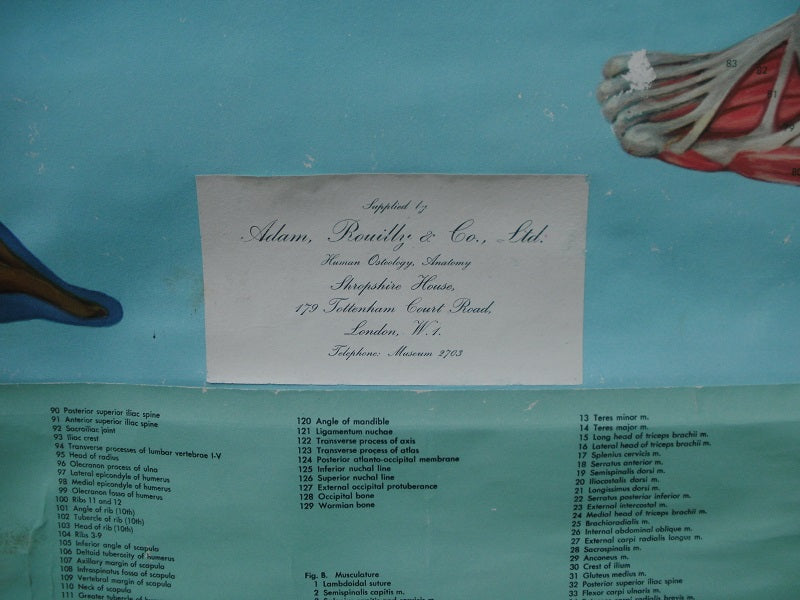 83
82
81
79
80
Supplied by
Adam, Rouilly & Co., Ltd.
Human Osteology, Anatomy
Shropshire House,
179 Tottenham Court Road,
London, W.1.
Telephone: Museum 2703
90 Posterior superior iliac spine
91 Anterior superior iliac spine
92 Sacroiliac joint
93 Iliac crest
94 Transverse processes of lumbar vertebrae I-V
95 Head of radius
96 Olecranon process of ulna
97 Lateral epicondyle of humerus
98 Medial epicondyle of humerus
99 Olecranon fossa of humerus
100 Ribs 11 and 12
101 Angle of rib (10th)
102 Tubercle of rib (10th)
103 Head of rib (10th)
104 Ribs 3-9
105 Inferior angle of scapula
106 Deltoid tuberosity of humerus
107 Axillary margin of scapula
108 Infraspinatus fossa of scapula
109 Vertebral margin of scapula
110 Neck of scapula
111 Greater tubercle of
120 Angle of mandible
121 Ligamentum nuchae
122 Transverse process of axis
123 Transverse process of atlas
124 Posterior atlanto-occipital membrane
125 Inferior nuchal line
126 Superior nuchal line
127 External occipital protuberance
128 Occipital bone
129 Wormian bone
Fig. B. Musculature
1 Lambdoidal suture
2 Semispinalis capitis m.
13 Teres minor m.
14 Teres major m.
15 Long head of triceps brachii m.
16 Lateral head of triceps brachii m.
17 Splenius cervicis m.
18 Serratus anterior m.
19 Semispinalis dorsi m.
20 Iliocostalis dorsi m.
21 Longissimus dorsi m.
22 Serratus posterior inferior m.
23 External intercostal m.
24 Medial head of triceps brachii m.
25 Brachioradialis m.
26 Internal abdominal oblique m.
27 External carpi radialis longus m.
28 Sacrospinalis m.
29 Anconeus m.
30 Crest of ilium
31 Gluteus medius m.
32 Posterior superior iliac spine
33 Flexor carpi ulnaris m.
carpi radialis brevis m.